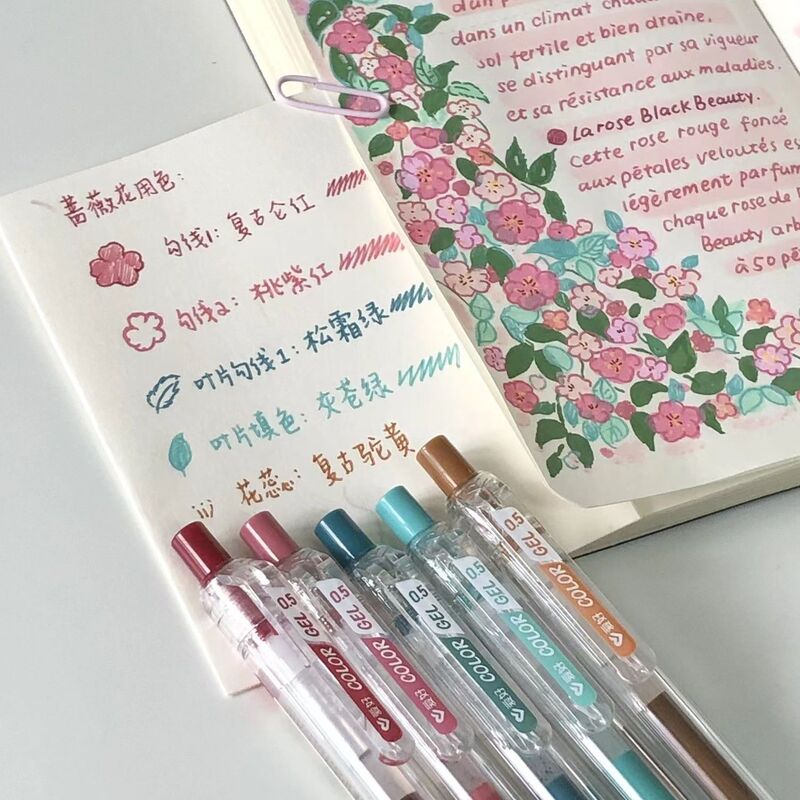 蔷薇花用色:
勾线1: 复古仑红
勾线2: 桃紫红
叶片勾线1: 松霜绿
叶片填色: 灰苍绿
花蕊: 复古驼黄
dans un climat
sol fertile et bien drainé,
se distinguant par sa vigueur
et sa résistance aux maladies.
La rose Black Beauty.
Cette rose rouge foncé
aux pétales veloutés
légèrement
chaque rose de
Beauty
à 50
爱好 COLOR GEL 0.5
爱好 COLOR GEL 0.5
爱好 COLOR GEL 0.5
爱好 COLOR GEL 0.5
爱好 COLOR GEL 0.5